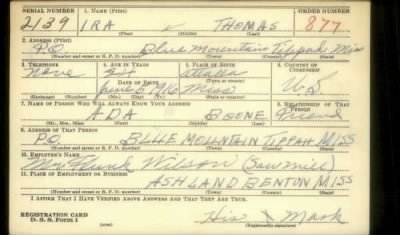 SERIAL NUMBER 1. NAME (Print) ORDER NUMBER
2139 IRA THOMAS 877
(First) (Middle) (Last)
2. ADDRESS (Print)
P.O. Blue Mountain Tippah Miss
(Number and street or R. F. D. number) (Town) (County) (State)
3. TELEPHONE 4. AGE IN YEARS 5. PLACE OF BIRTH 6. COUNTRY OF CITIZENSHIP
None 24
DATE OF BIRTH
June Miss U.S.
(Exchange) (Number) (Mo.) (Day) (Yr.) (State or country)
7. NAME OF PERSON WHO WILL ALWAYS KNOW YOUR ADDRESS 8. RELATIONSHIP OF THAT PERSON
ADA BOONE Friend
(Mr., Mrs., Miss) (First) (Middle) (Last)
9. ADDRESS OF THAT PERSON
P.O. BLUE MOUNTAIN TIPPAH MISS
(Number and street or R. F. D. number) (Town) (County) (State)
10. EMPLOYER'S NAME
Mr Wilson (Saw mill)
11. PLACE OF EMPLOYMENT OR BUSINESS
ASHLAND BENTON MISS
(Number and street or R. F. D. number) (Town) (County) (State)
I AFFIRM THAT I HAVE VERIFIED ABOVE ANSWERS AND THAT THEY ARE TRUE.
REGISTRATION CARD
D. S. S. Form 1 His X Mark
(Registrant's signature)